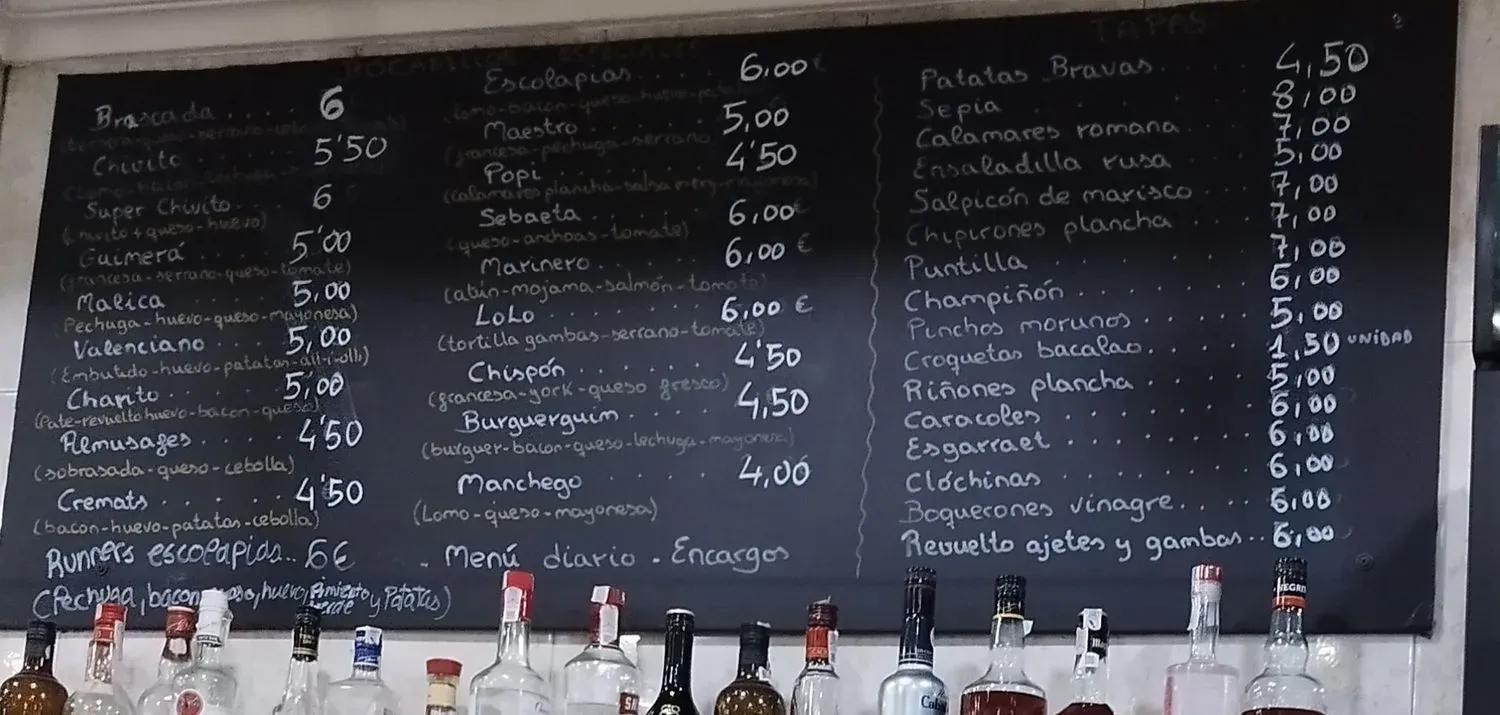 BOCADILLOS ESPECIALES
Brascada .... 6
Chivito ..... 5'50
Super Chivito .. 6
(chivito + queso - huevo)
Guimerá ... 5'00
(francesa - serrano - queso - tomate)
Malica ..... 5,00
(Pechuga - huevo - queso - mayonesa)
Valenciano ... 5,00
(Embutido - huevo - patatas - all-i-olli)
Charito ..... 5,00
(Pate - revuelto huevo - bacon - queso)
Remusages ..... 4'50
(sobrasada - queso - cebolla)
Cremats ..... 4'50
(bacon - huevo - patatas - cebolla)
Runners escolapids.. 6€
(Pechuga, bacon, huevo, Pimiento verde y Patatas)
Escolapias ..... 6,00€
(lomo - bacon - queso - huevo - patatas)
Maestro ..... 5,00
(francesa - pechuga - serrano
Popi ..... 4'50
(calamares plancha - salsa mery - mayonesa)
Sebaeta ..... 6,00€
(queso - anchoas - tomate)
Marinero ..... 6,00 €
(atún - mojama - salmón - tomate)
LoLo ..... 6,00 €
(tortilla gambas - serrano - tomate)
Chispón ..... 4'50
(francesa - york - queso fresco)
Burguerguim ..... 4,50
(burguer - bacon - queso - lechuga - mayonesa)
Manchego ..... 4,00
(Lomo - queso - mayonesa)
. Menú diario . Encargos
TAPAS
Patatas Bravas ..... 4,50
Sepia ..... 8,00
Calamares romana ... 7,00
Ensaladilla rusa ... 5,00
Salpicón de marisco ... 7,00
Chipirones plancha ... 7,00
Puntilla ..... 7,00
Champiñón ..... 6,00
Pinchos morunos ..... 5,00
Croquetas bacalao ..... 1,50 UNIDAD
Riñones plancha ..... 5,00
Caracoles ..... 6,00
Esgarraet ..... 6,00
Clóchinas ..... 6,00
Boquerones vinagre .... 6,00
Revuelto ajetes y gambas .. 6,00